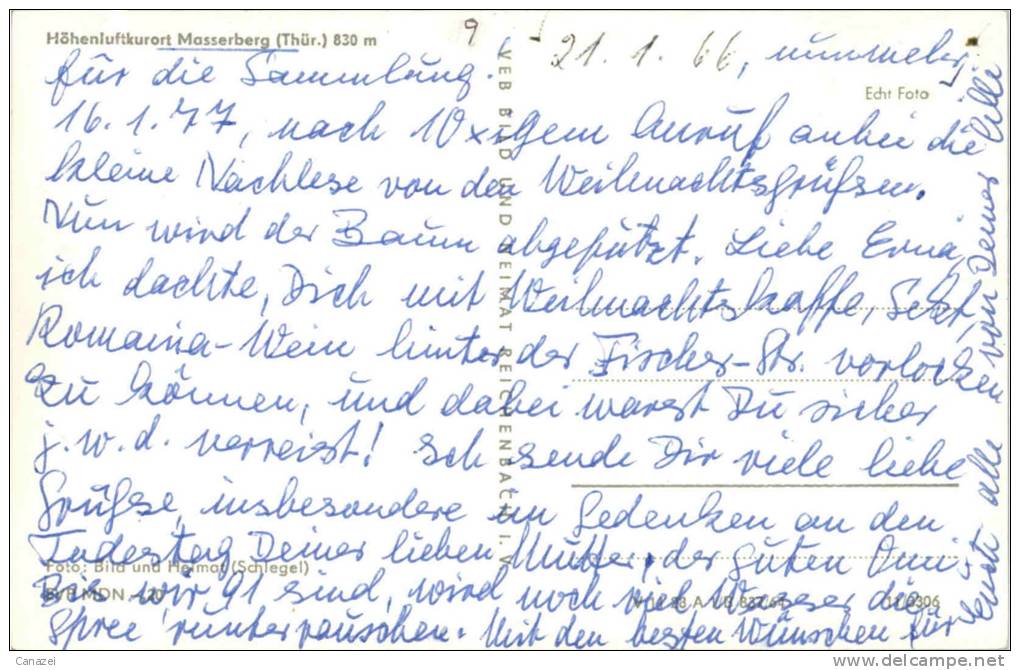 Höhenluftkurort Masserberg (Thür.) 830 m
9
21. 1. 66, nunmehr
Echt Foto
für die Sammlung.
16.1.77, nach 10xigem Anruf anbei die
kleine Nachlese von den Weihnachtsgrüßen.
Nun wird der Baum abgeputzt. Liebe Erna,
ich dachte, Dich mit Weihnachtskaffe, Sekt,
Romaina-Wein hinter der Fischer-Str. vorlocken
zu können, und dabei warst Du sicher
j.w.d. verreist! Ich sende Dir viele liebe
Grüße, insbesondere im Gedenken an den
Todestag Deiner lieben Mutter, der guten Omi.
Foto: Bild und Heimat (Schlegel)
Bis wir 91 sind, wird noch viel Wasser die
Spree runter rauschen. Mit den besten Wünschen für
Euch alle
von Deiner Cille
VEB BILD UND HEIMAT REICHENBACH I. V.